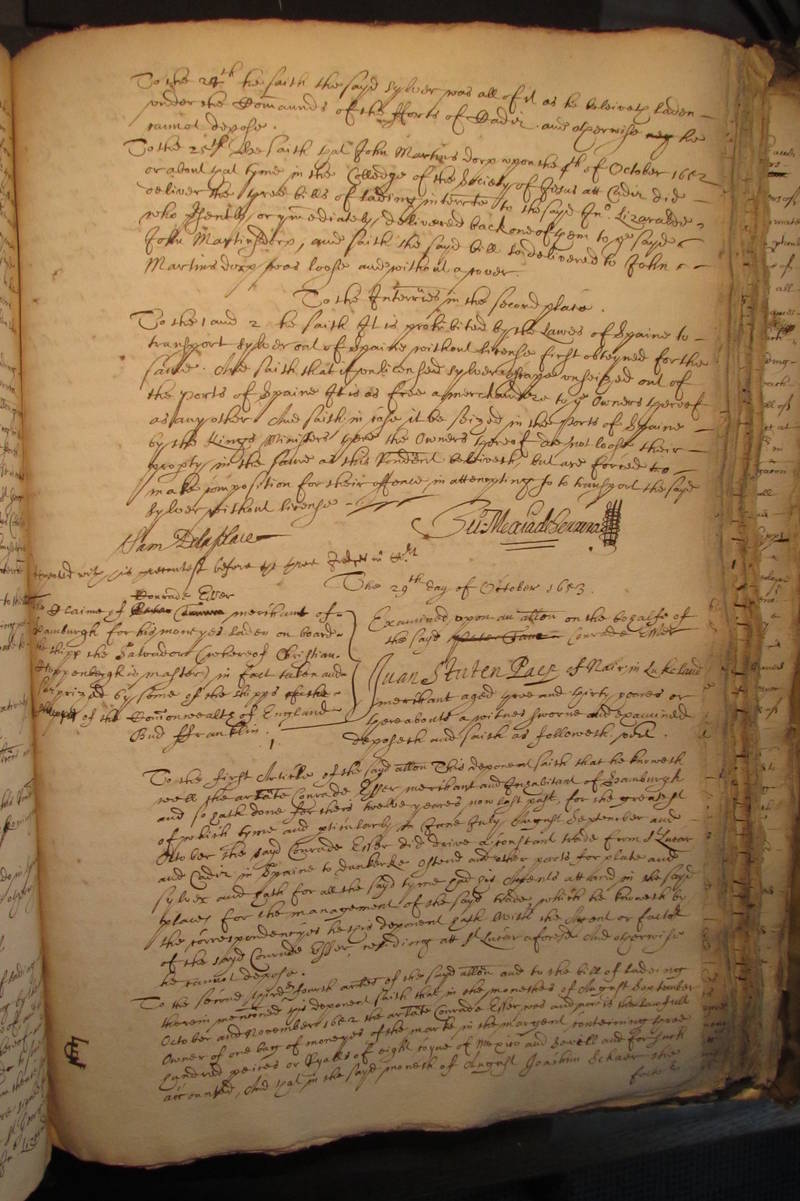 To the 24th he saith the sayd sylver was all of it as he beleiveth laden
under the Commaunds of the fforts of Cadiz. and otherwise hee
cannot depose.
To the 25th hee saith that John Martins dorp upon the of October 1652
or about that tyme in the Colledge of the Society of Jesus att Cadiz did
deliver the three bills of lading interrte to the sayd Jno. Lizaralde
who then by or ymediately delivered back one of them to the sayd
John Martins dorp, and saith the sayd bill so delivered to John
Martins dorp was loose and without a cover.
To the Interries in the second place.
To the 1 and 2 he saith It is prohibited by the Lawes of Spaine to
transport sylver out of Spaine without license first obteyned for the
same. And saith that if unlicensed sylver escape unseized out of
the ports of Spaine It is as free a merchandize to ye Owners thereof
as any other And saith in case it be seized in the ports of Spaine
by the Kings Ministers there the Owners thereof doe not loose their
propty in the same as this Rendent beleiveth, but are forced to
make composition for their offence in attempting so to transport the sayd
sylver without license
Sam Delaplace
Repeated with his precontest before the three Judges in Crt
The 29th day of October 1653.
Conrade Esser
The Claime of merchant of
Hamburgh for his moneyes laden on board
the shipp the Salvador (whereof Christian
Cloppenburgh is master) in fact taken and
surprized by some of the shipps of the
of the Comonwealth of England
Bud ffrancklin.
Examined upon an allon on the behalfe of
the sayd Conrade Esser
1
Juan Stuten Pace of in Lukeland
merchant aged three and thirty yeares or
thereabouts a witnes sworne and examined
deposeth and saith as followeth vizt.
To the first Article of the sayd allon This deponent saith that he knoweth
well the arlate Conrade Esser merchant and Inhabitant of Hamburgh
and so hath done for these twelve yeares now last past, for the greatest
of which tyme and pticularly in June July August September and
October the sayd Conrade Esser did drive a constant trade from St Lucar
and Cadiz in Spaine to Dunkerke Ostend and other ports for plate and
sylver and hath for all the sayd tyme had his Agents att and in the sayd
places for the management of the sayd trade, which he knoweth by
the correspondencyes he this deponent hath with the Agent or factor
of the sayd Conrade Esser, residing att St Lucar aforesd And otherwise
he cannot depose.
To the second third fourth arles of the sayd allon and to the bill of ladeing
therein mentioned this deponent saith that in the monethes of August September
October and November 1652 the arlate Conrade Esser was and was the lawfull
Owner of one bag of moneyes of the marke in the margent conteining three
hundred peices or Ryalls of eight coyne of Mexico and Sevill and for such
accounted, And that in the sayd moneth of August Joachim Schaer the
factor